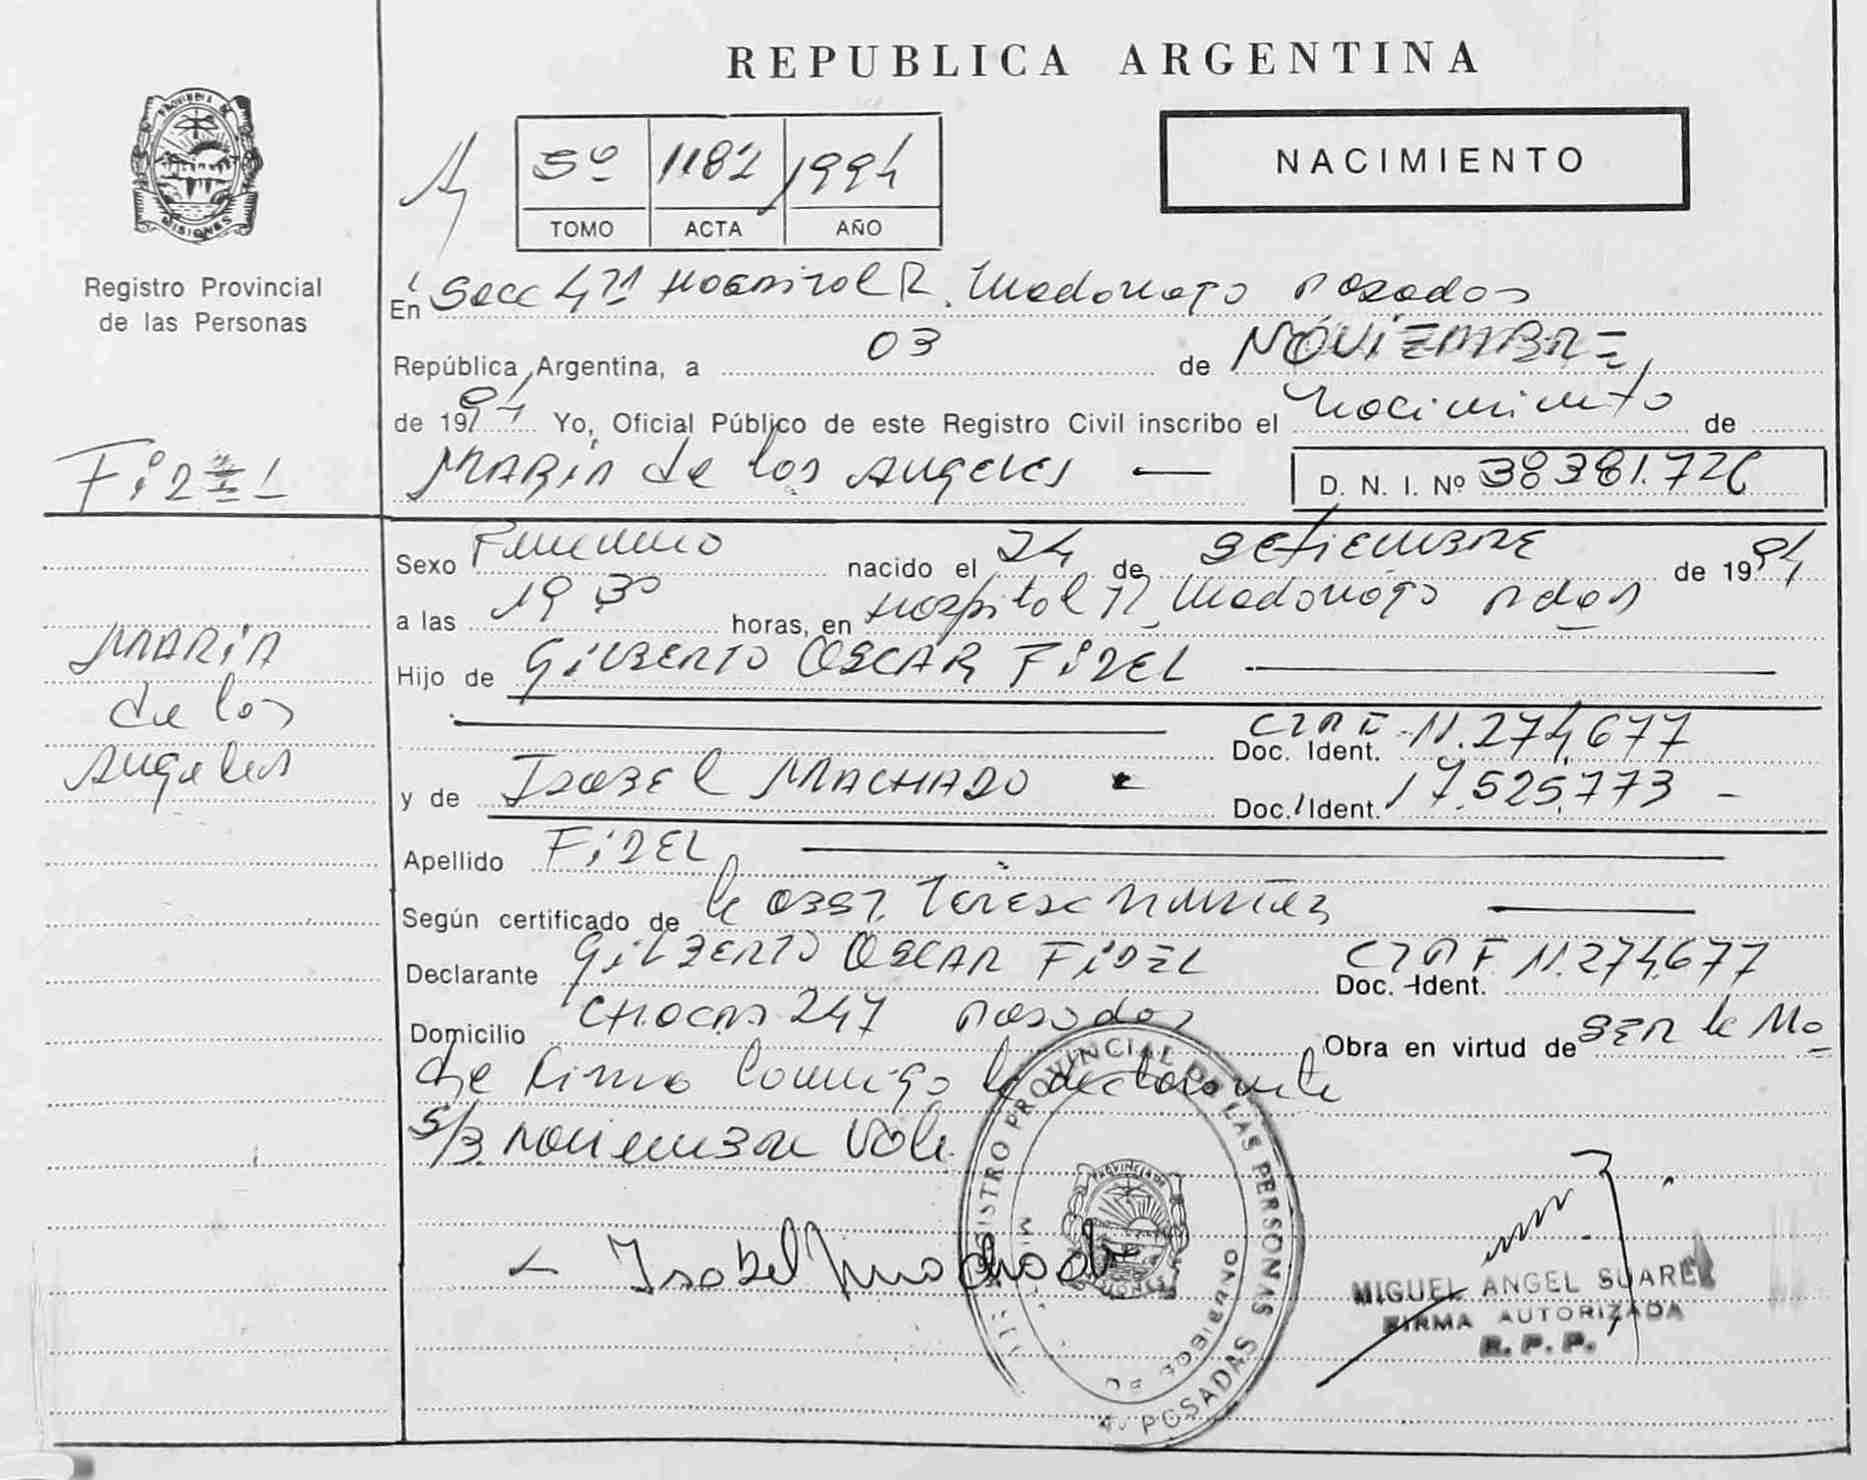 REPUBLICA ARGENTINA
PROVINCIA DE
MISIONES
Registro Provincial
de las Personas
5º 1182 1994
TOMO ACTA AÑO
NACIMIENTO
En Secc 4ta Hospital R. Madariaga Posadas
República Argentina, a 03 de NOVIEMBRE
de 1994 Yo, Oficial Público de este Registro Civil inscribo el Nacimiento de
MARIA de los Angeles D. N. I. Nº 38381.726
FidEL
MARIA
de los
Angeles
Sexo Femenino nacido el 24 de Setiembre de 1994
a las 19 30 horas, en Hospital R. Madariaga Pdas
Hijo de GILBERTO OSCAR FIDEL
Doc. Ident. 11.274.677
y de ISABEL MACHADO Doc. Ident. 17.525.773 -
Apellido FIDEL
Según certificado de la Obst. Teresa
Declarante GILBERTO OSCAR FIDEL Doc. Ident. 11.274.677
Domicilio CHACAS 247 Posadas Obra en virtud de SER la Ma
dre Firma Conmigo la declarante
S/B. Noviembre Vale
Isabel Machado
REGISTRO PROVINCIAL DE LAS PERSONAS
POSADAS
MIN. DE GOBIERNO
PROVINCIA DE
MISIONES
MIGUEL ANGEL SUAREZ
FIRMA AUTORIZADA
R. P. P.